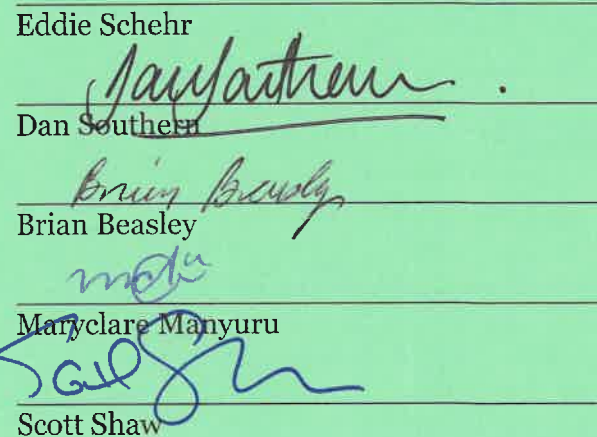 Eddie Schehr
Dan Southern
Brian Beasley
Brian Beasley
Maryclare Manyuru
Scott Shaw